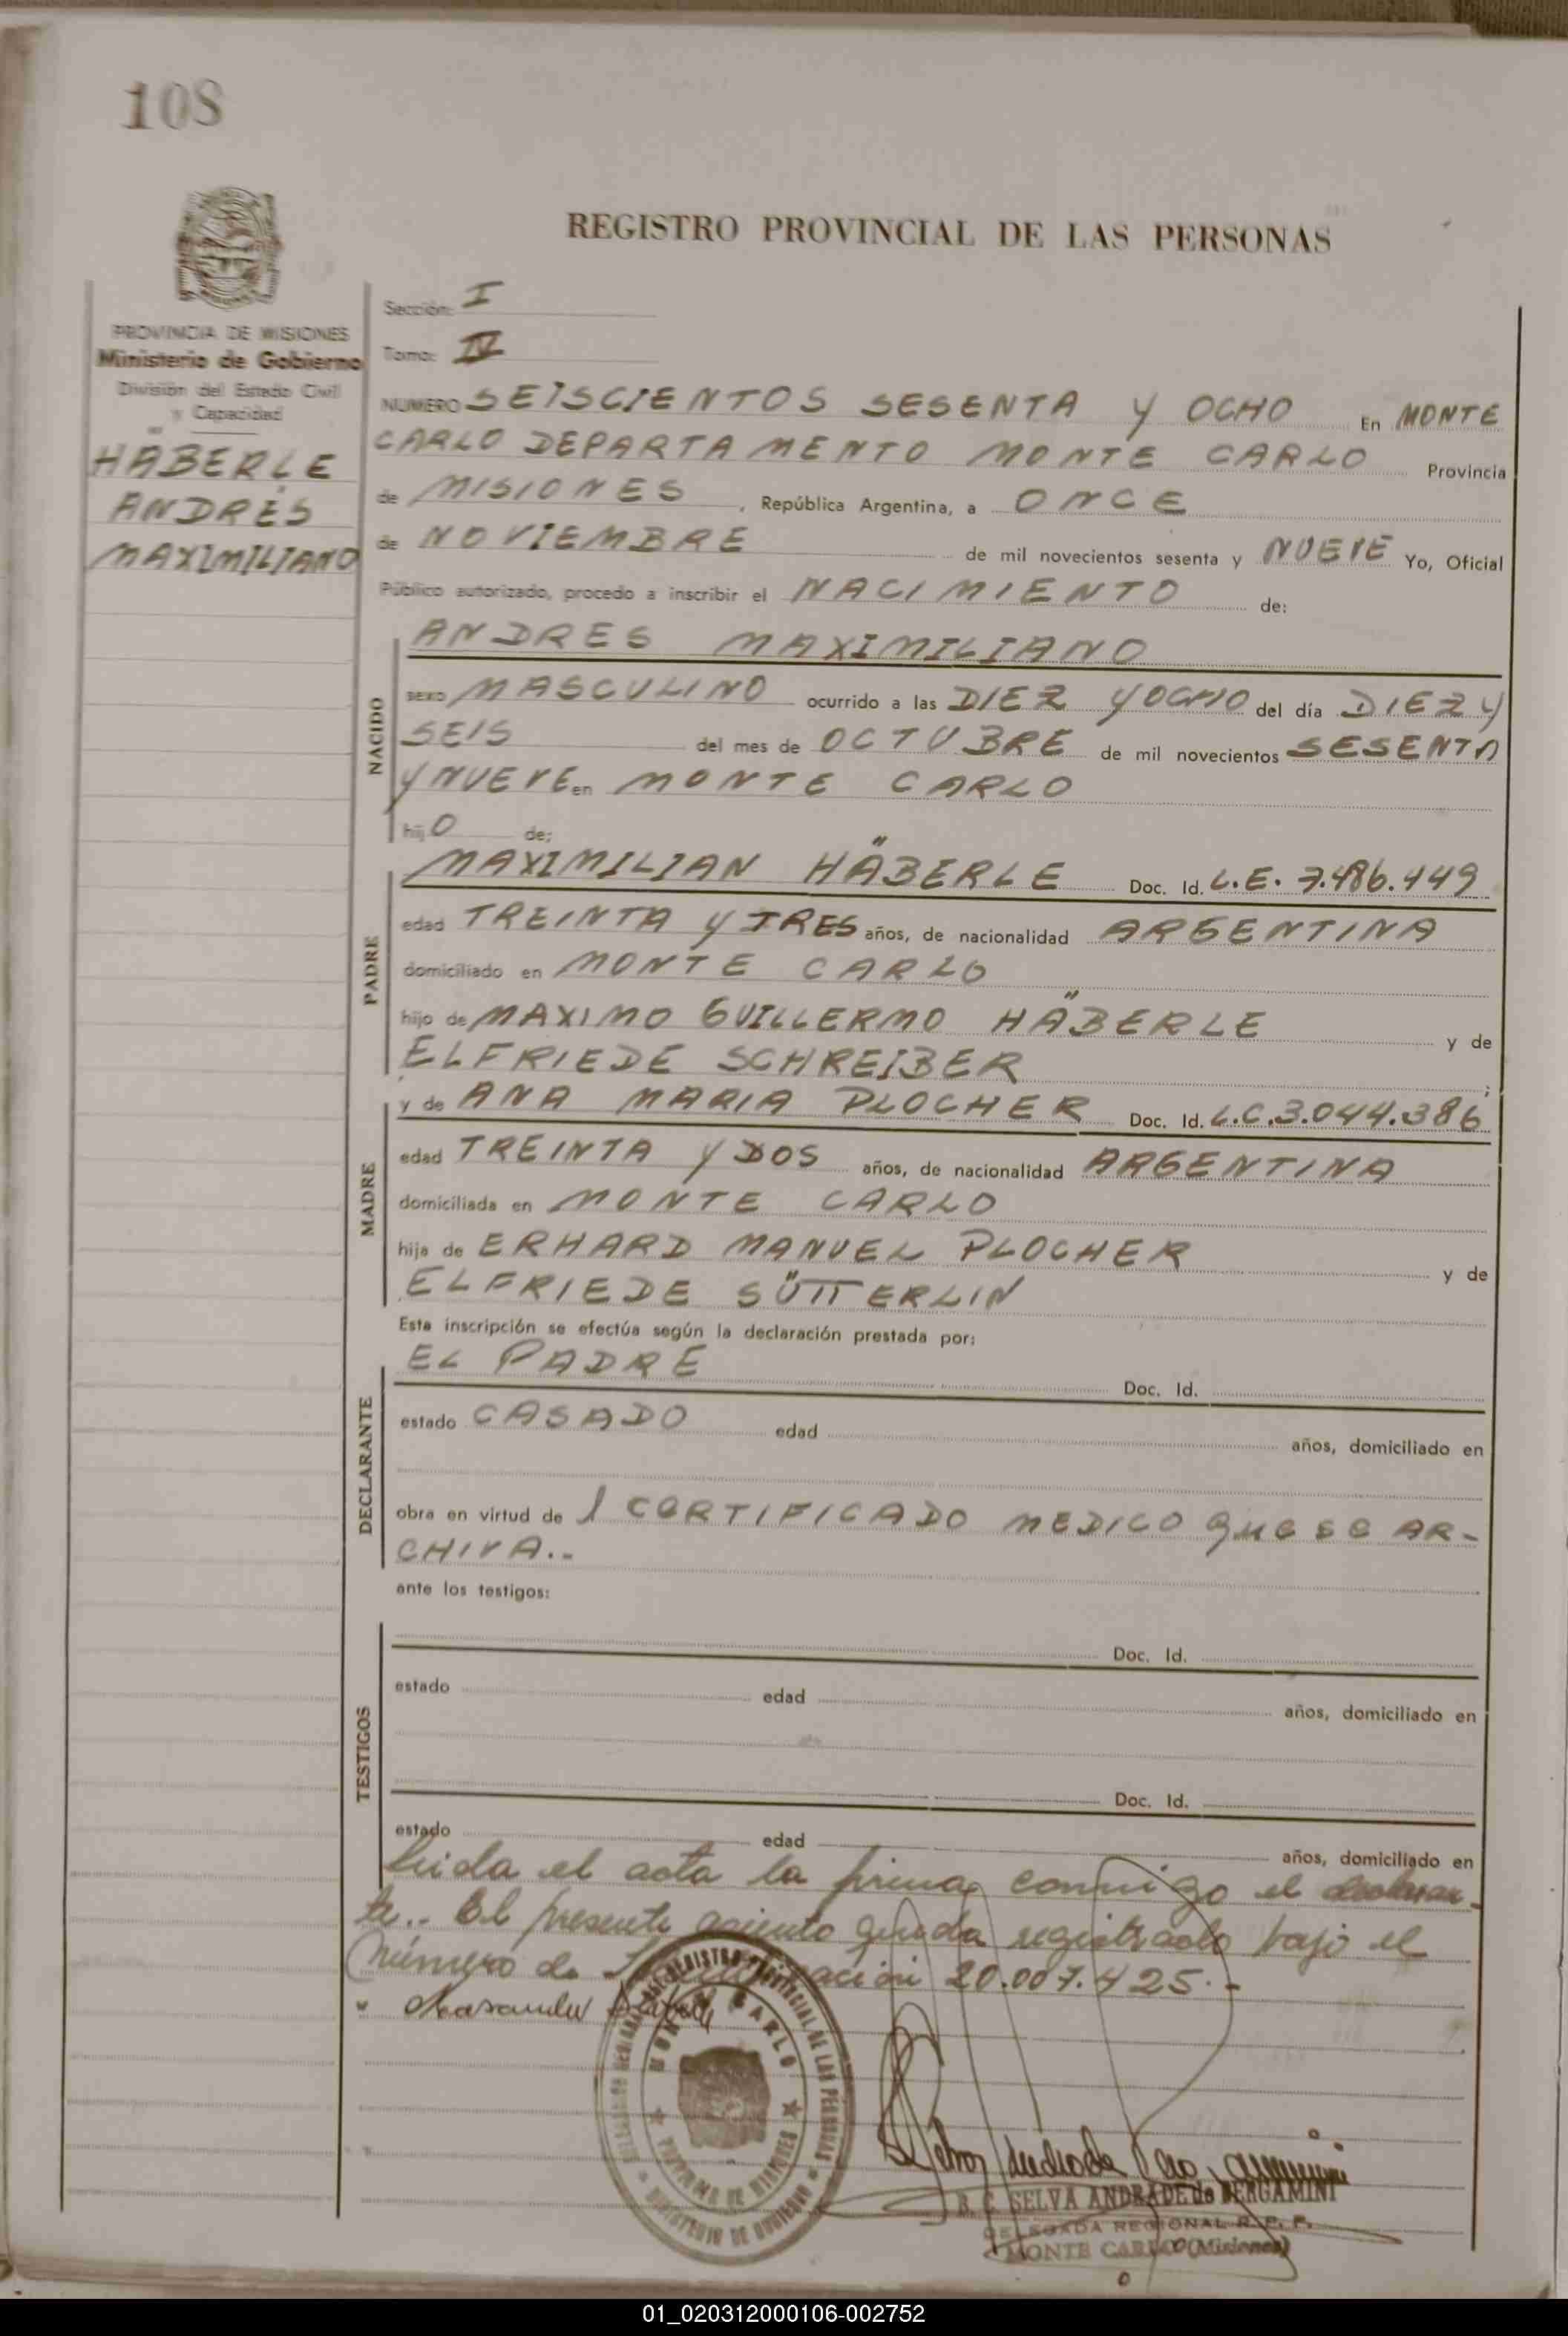 108
REGISTRO PROVINCIAL DE LAS PERSONAS
PROVINCIA DE MISIONES
Ministerio de Gobierno
División del Estado Civil
y Capacidad
HÄBERLE
ANDRÉS
MAXIMILIANO
Sección: I
Tomo: IV
NUMERO SEISCIENTOS SESENTA Y OCHO En MONTE
CARLO DEPARTAMENTO MONTE CARLO Provincia
de MISIONES, República Argentina, a ONCE
de NOVIEMBRE de mil novecientos sesenta y NUEVE Yo, Oficial
Público autorizado, procedo a inscribir el NACIMIENTO de:
NACIDO
ANDRES MAXIMILIANO
sexo MASCULINO ocurrido a las DIEZ Y OCHO del día DIEZ Y
SEIS del mes de OCTUBRE de mil novecientos SESENTA
Y NUEVE en MONTE CARLO
hijO de:
PADRE
MAXIMILIAN HÄBERLE Doc. Id. L.E. 7.486.449
edad TREINTA Y TRES años, de nacionalidad ARGENTINA
domiciliado en MONTE CARLO
hijo de MAXIMO GUILLERMO HÄBERLE y de
ELFRIEDE SCHREIBER ;
MADRE
y de ANA MARIA PLOCHER Doc. Id. L.C. 3.044.386
edad TREINTA Y DOS años, de nacionalidad ARGENTINA
domiciliada en MONTE CARLO
hija de ERHARD MANUEL PLOCHER y de
ELFRIEDE SÜTTERLIN
Esta inscripción se efectúa según la declaración prestada por:
DECLARANTE
EL PADRE Doc. Id.
estado CASADO edad años, domiciliado en
obra en virtud de 1 CERTIFICADO MEDICO QUE SE AR-
CHIVA.-
ante los testigos:
TESTIGOS
Doc. Id.
estado edad años, domiciliado en
Doc. Id.
estado edad años, domiciliado en
Leida el acta la firma conmigo el declaran-
te.- El presente asiento queda registrado bajo el
número de 20.007.425.-
REGISTRO PROVINCIAL DE LAS PERSONAS
MONTE CARLO
PROVINCIA DE MISIONES
MINISTERIO DE GOBIERNO
B. C. SELVA ANDRADE de BERGAMINI
DELEGADA REGIONAL R. P. P.
MONTE CARLO (Misiones)
01_020312000106-002752